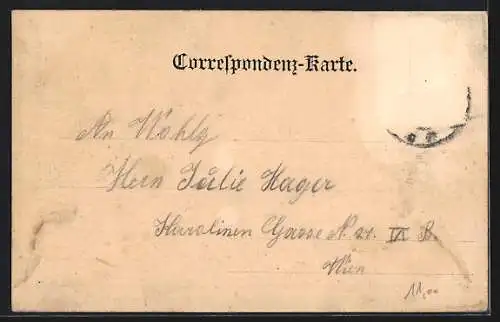 Correspondenz-Karte.
An Wohlg
Herr Julie Hager
Karolinen Gasse N 21. IV B.
Wien
11,00